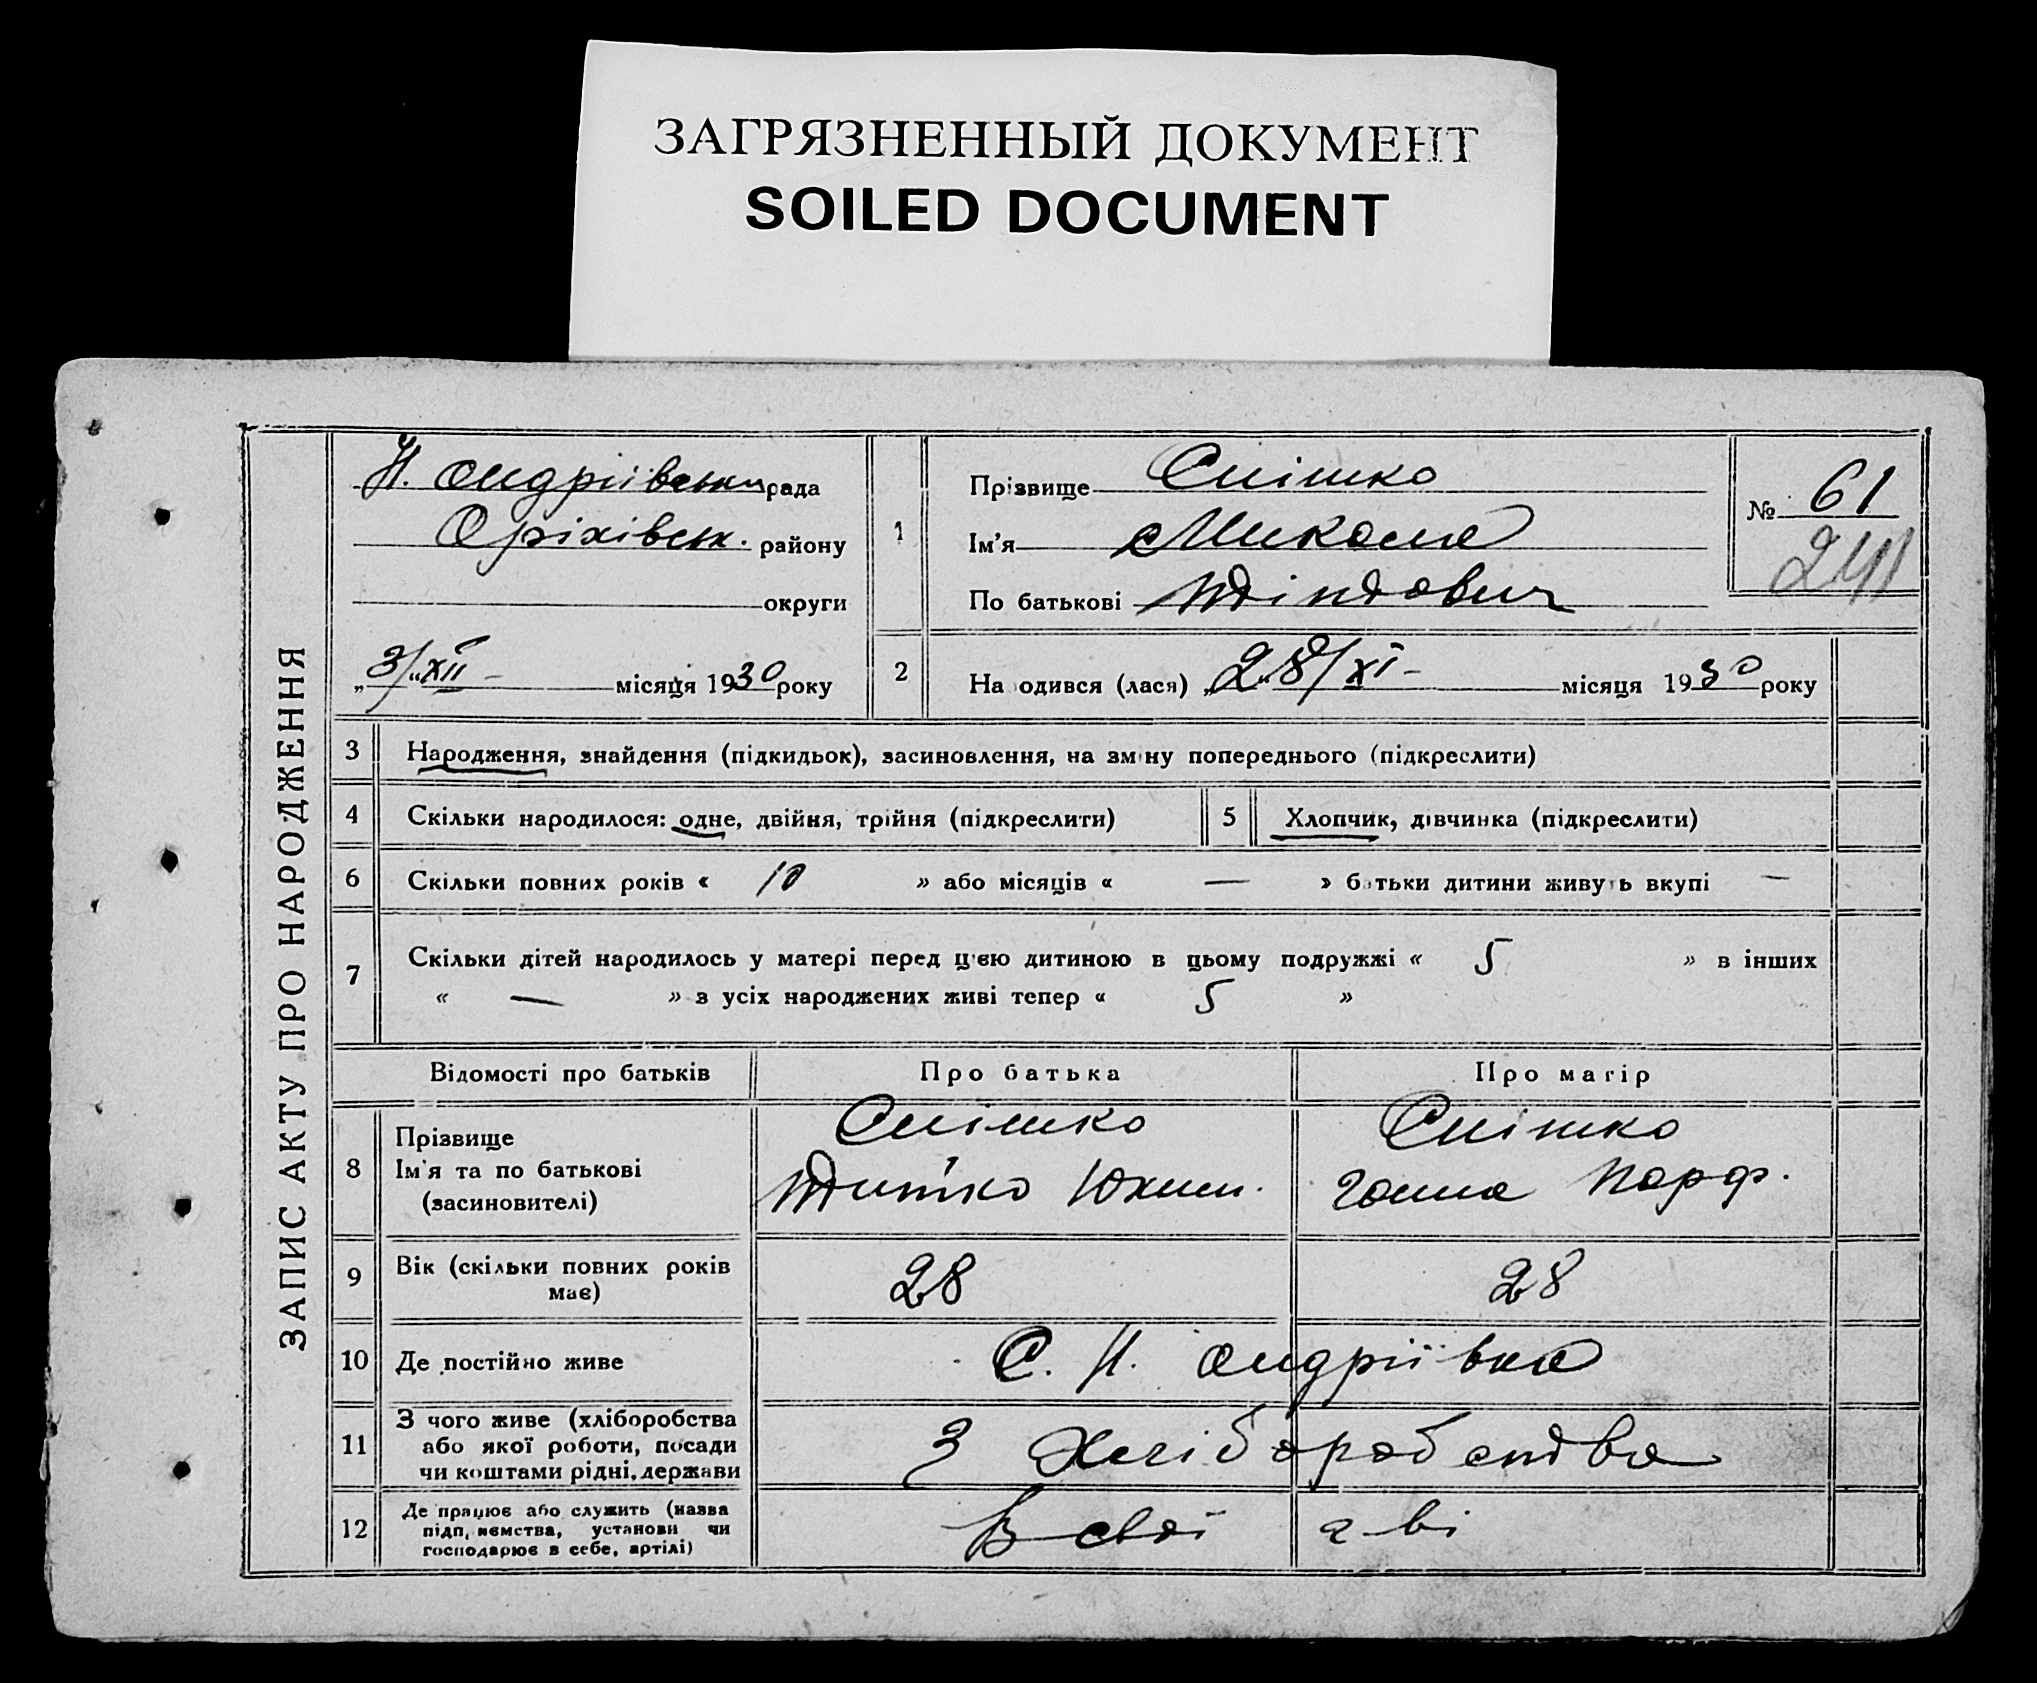 ЗАГРЯЗНЕННЫЙ ДОКУМЕНТ
SOILED DOCUMENT
ЗАПИС АКТУ ПРО НАРОДЖЕННЯ
Н. Андріївськ рада
Оріхівськ. району
округи
„3/“ XII – місяця 1930 року
1
Прізвище Спішко
Ім'я Микола
По батькові
№ 61
241
2 На одився (лася) „28/XI – місяця 1930 року
3 Народження, знайдення (підкидьок), засиновлення, на зміну попереднього (підкреслити)
4 Скільки народилося: одне, двійня, трійня (підкреслити)
5 Хлопчик, дівчинка (підкреслити)
6 Скільки повних років « 10 » або місяців « — » батьки дитини живуть вкупі —
7 Скільки дітей народилось у матері перед цією дитиною в цьому подружжі « 5 » в інших
« — » з усіх народжених живі тепер « 5 »
Відомості про батьків Про батька Про матір
8 Прізвище
Ім'я та по батькові
(засиновителі)
Спішко
Юхим.
Спішко
Ганна Парф.
9 Вік (скільки повних років
має)
28 28
10 Де постійно живе
С. Н. Андріївка
11 З чого живе (хліборобства
або якої роботи, посади
чи коштами рідні, держави
З Хліборобства
12 Де працює або служить (назва
підприємства, установи чи
господарює в себе, артілі)
В свої